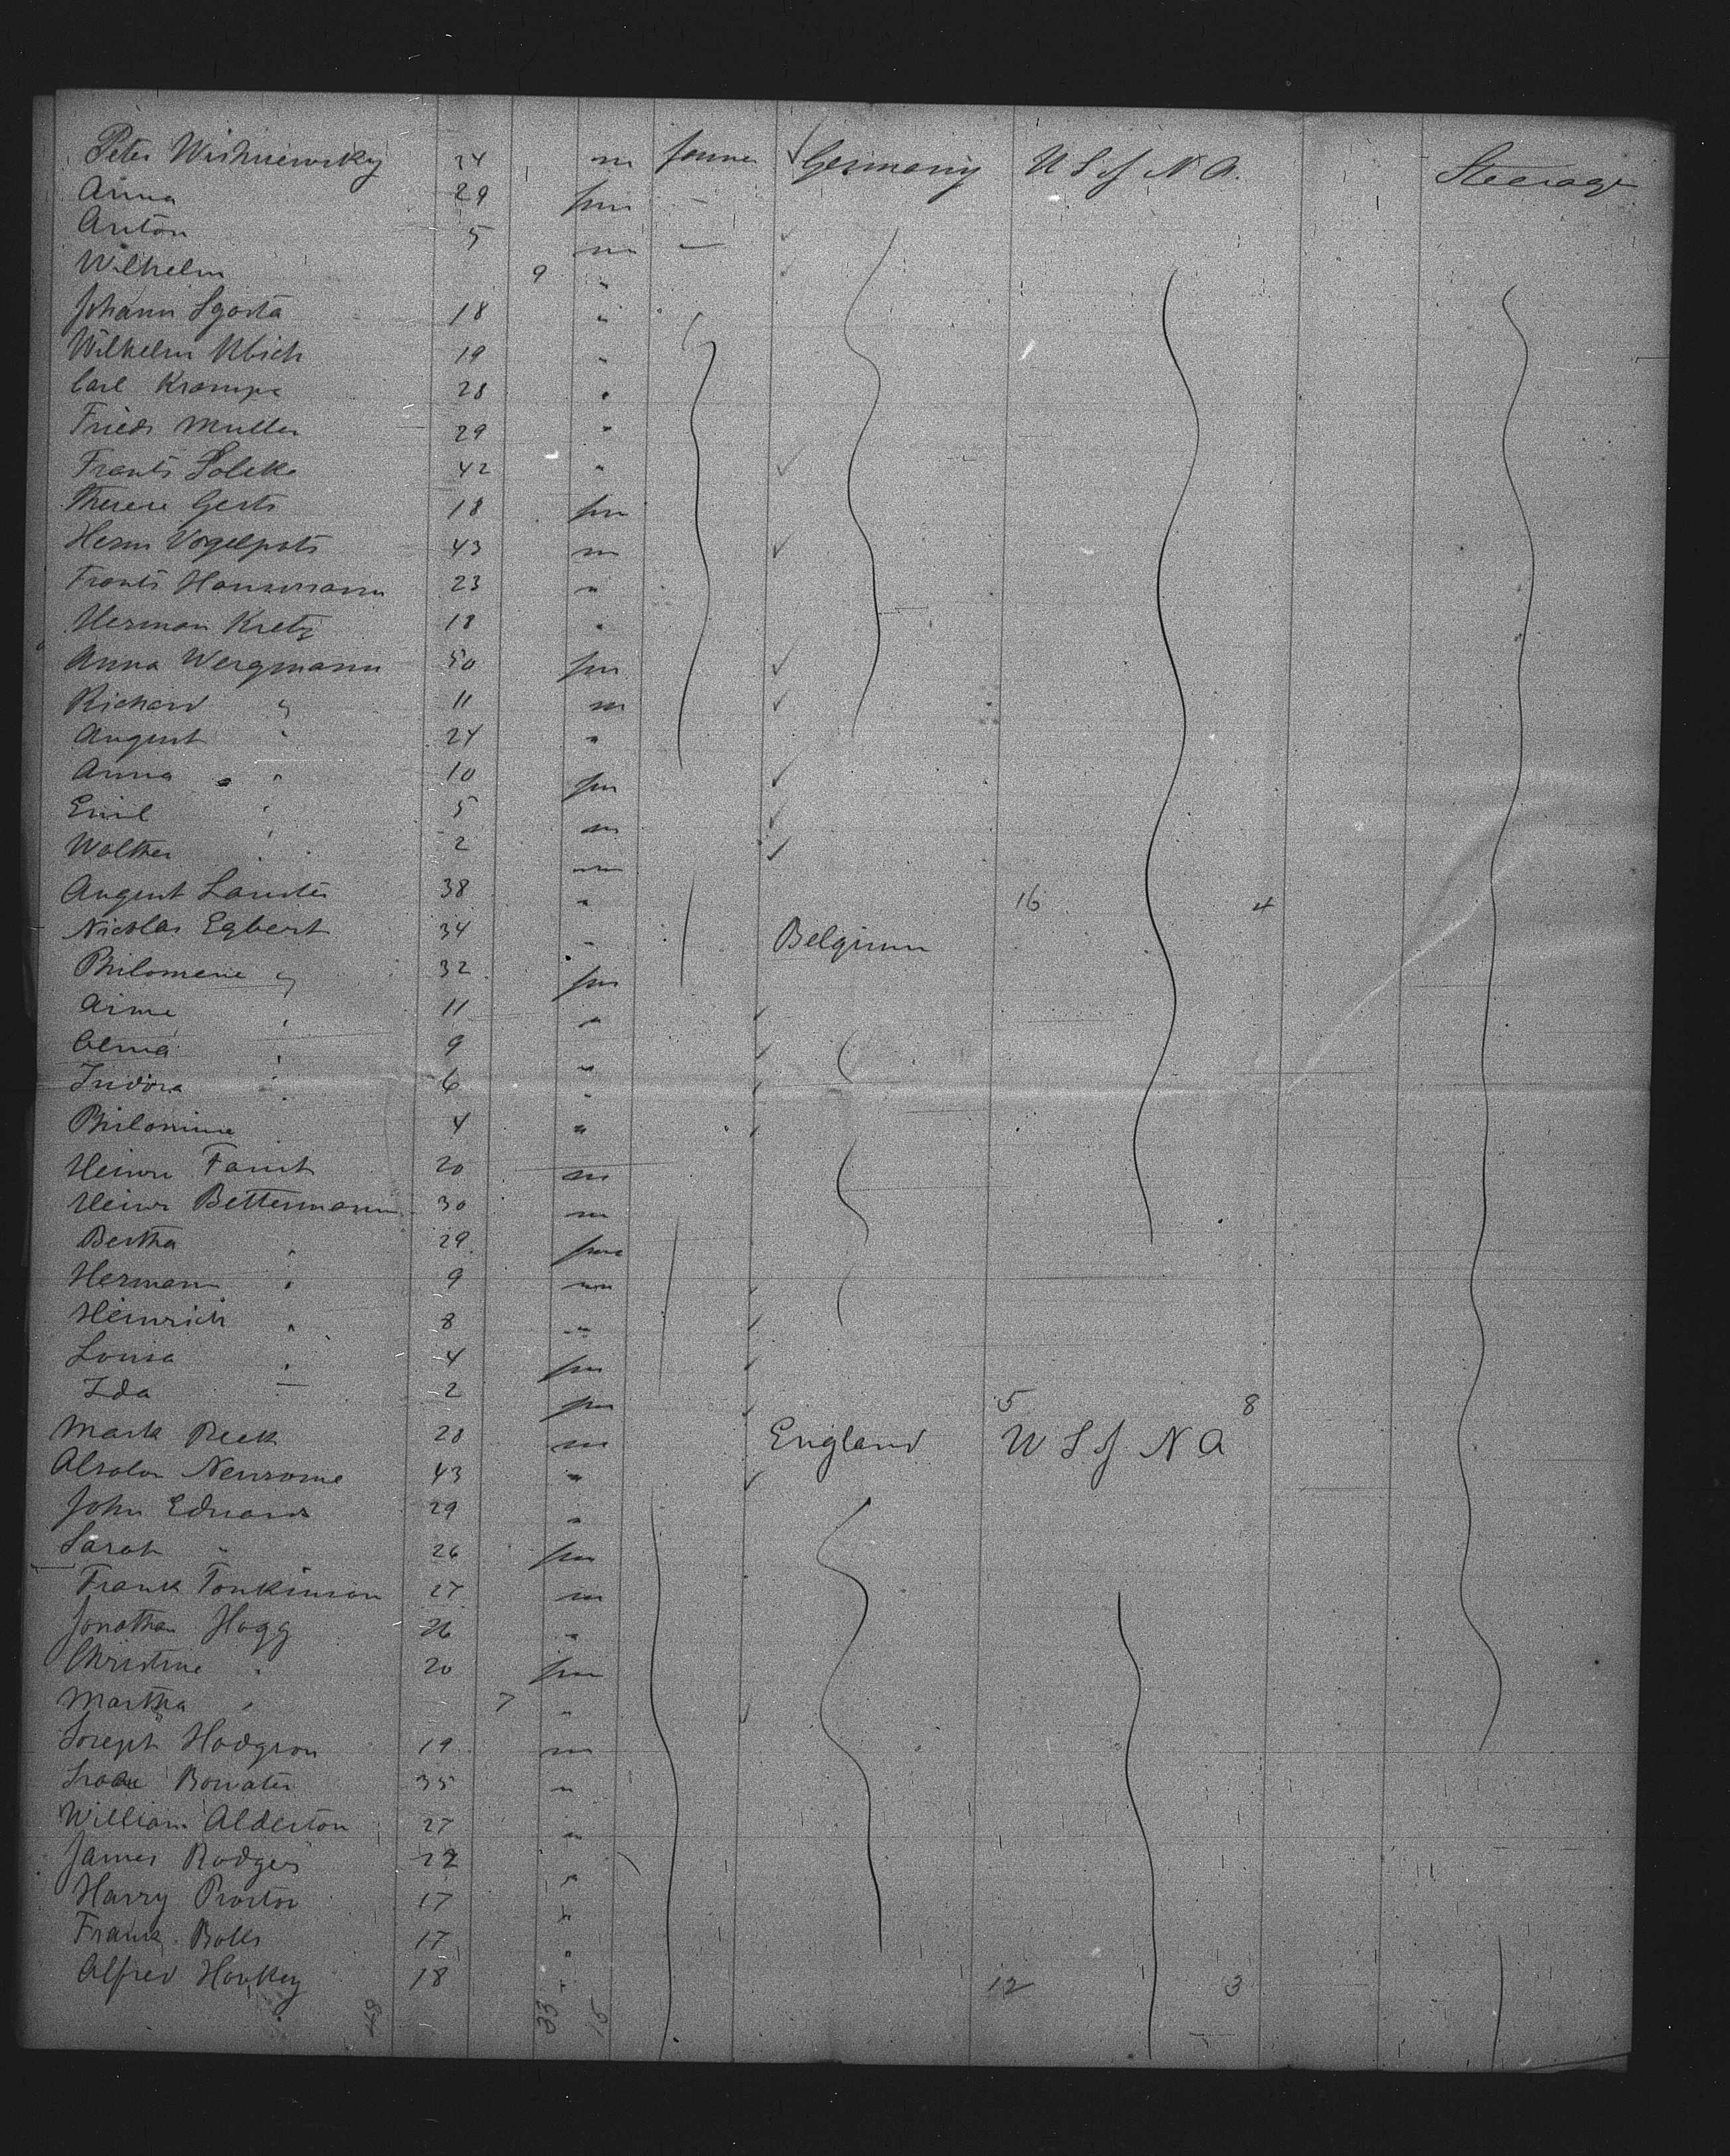 Peter Wishniewsky 34 m farmer Germany U S of N A. Steerage
Anna 29 fm —
Anton 5 m —
Wilhelm 9 "
Johann Sgosta 18 "
Wilhelm Ubich 19 "
Carl Krampe 28 "
Friedr Muller 29 "
Frants Poleke 42 "
Therese Gerts 18 fm
Herm Vogelpots 43 m
Frants Hansmann 23 "
Herman Kretz 18 "
Anna Wergmann 50 fm
Richard " 11 m
August " 24 "
Anna " 10 fm
Emil " 5 m
Walther " 2 m
August Lander 38 " 16 4
Nicolas Egbert 34 " Belgium
Philomene " 32 fm
Aime " 11 "
Alma " 9 "
Isidora " 6 "
Philomine 4 "
Heinr Faust 20 m
Heinr Bettermann 30 m
Bertha " 29 fm
Hermann " 9 m
Heinrich " 8 "
Louisa " 4 fm
Ida — 2 fm 5 8
Mark Peek 28 m England U S of N A
Absolon Newsome 43 "
John Edwards 29 "
Sarah " 26 fm
Frank Tonkinson 27 m
Jonathan Hogg 26 "
Christine " 20 fm
Martha " 7 "
Joseph Hodgson 19 m
Isaac Bowater 35 "
William Alderton 27 "
James Rodgers 22 "
Harry Proctor 17 "
Frank Bolls 17 "
Alfred Hawkey 18 " 12 3
48 33 16